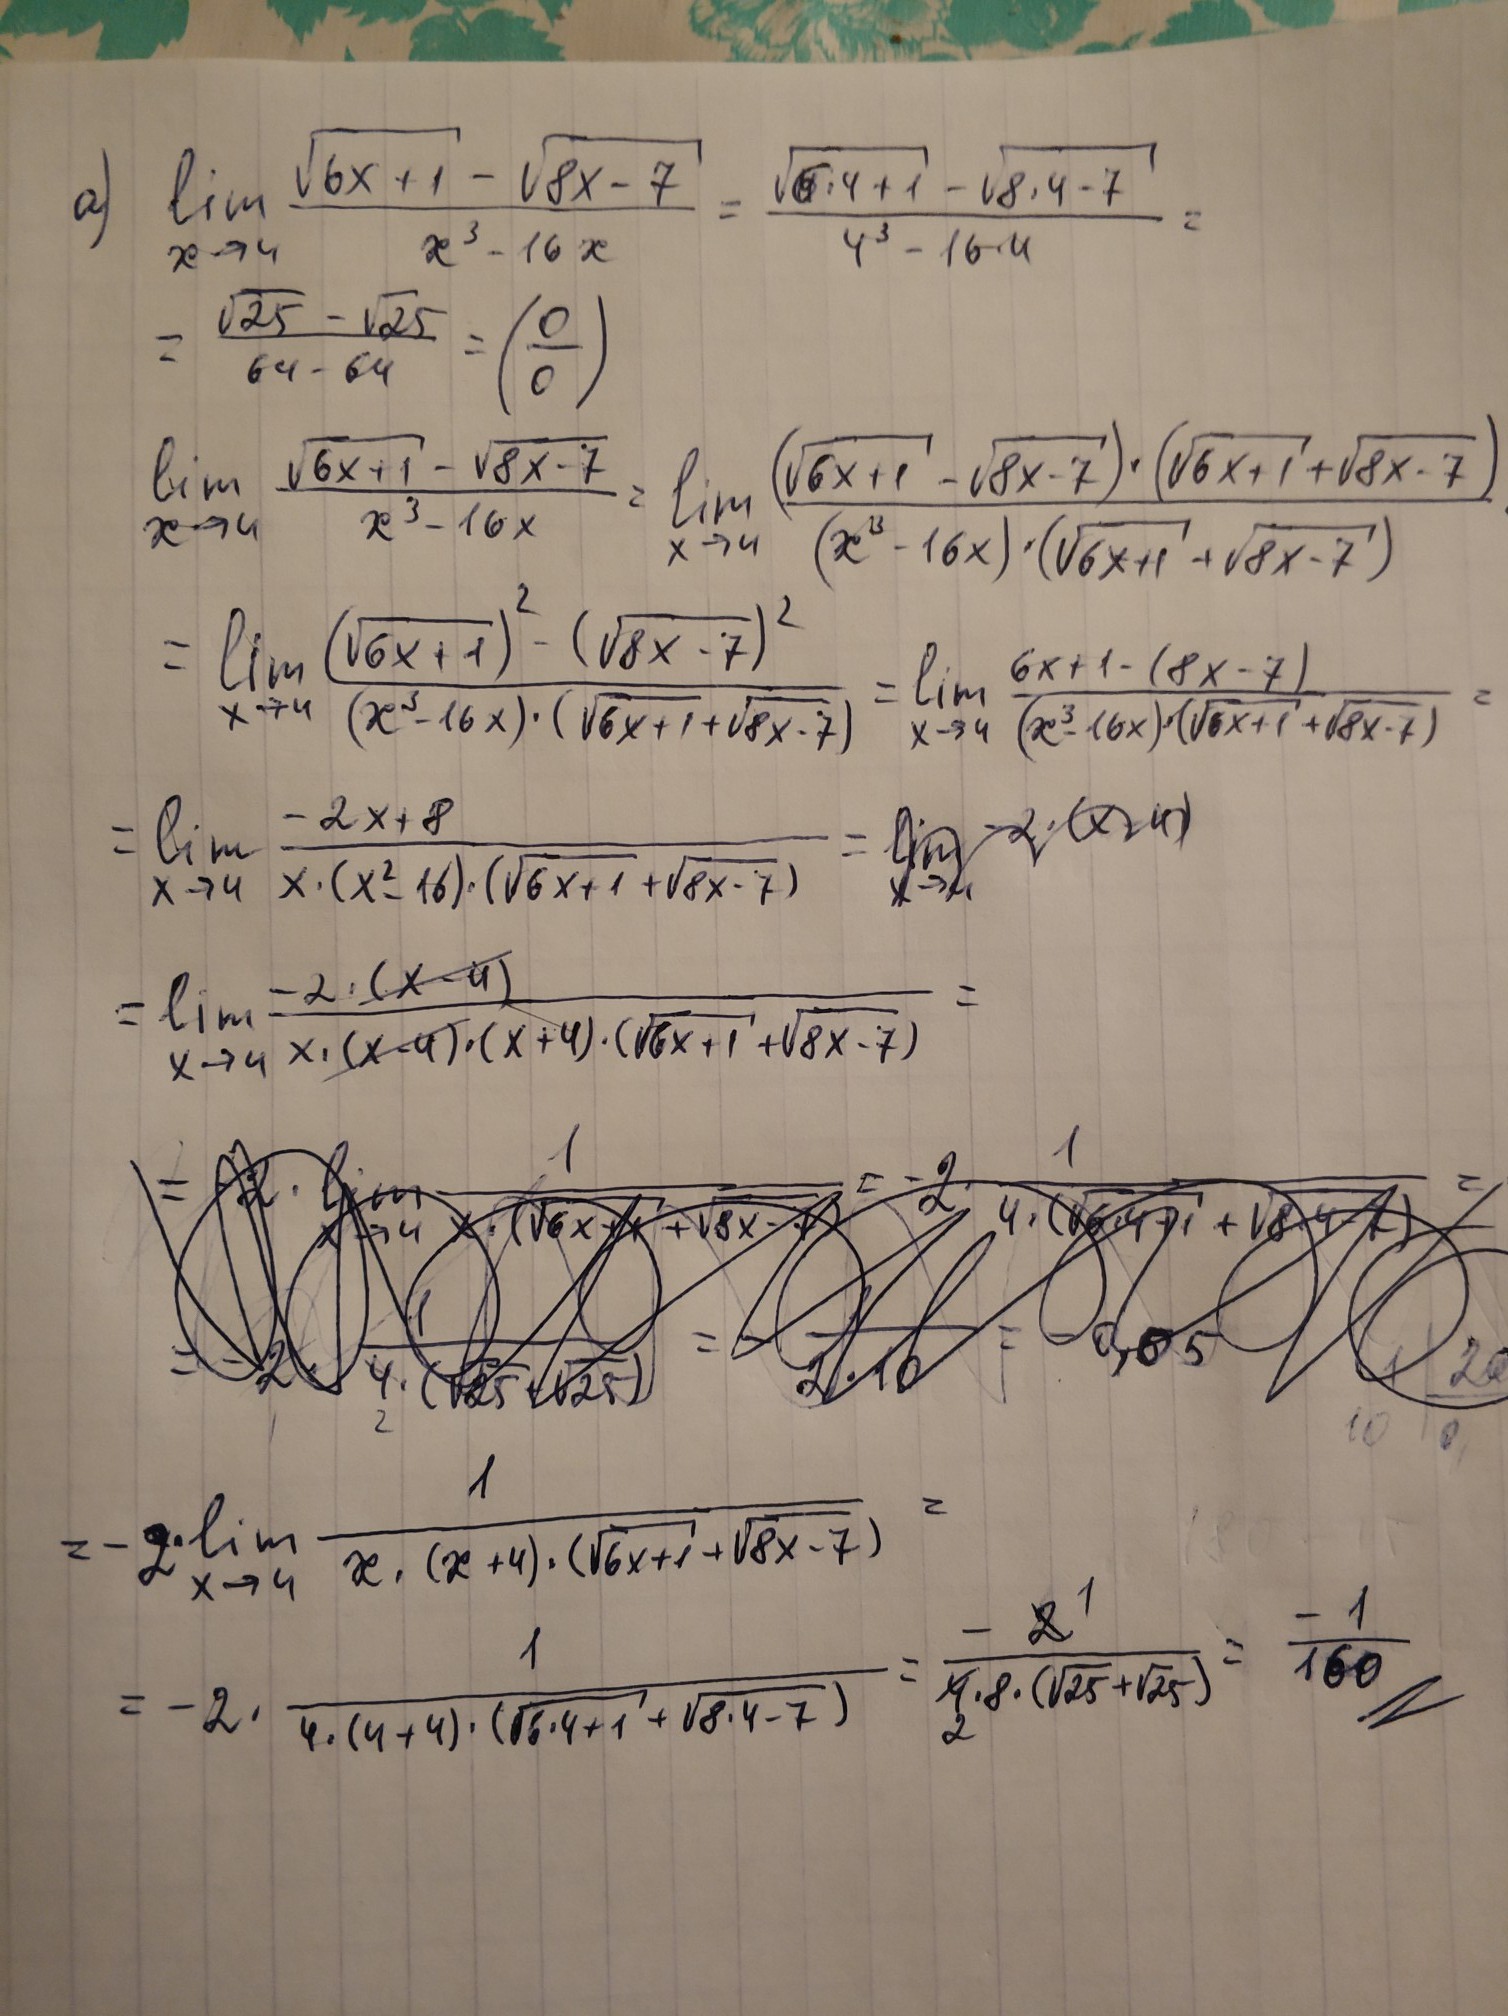 a) lim x→4 (√(6x+1) - √(8x-7))/(x³-16x) = (√(6·4+1) - √(8·4-7))/(4³-16·4) =
= (√25 - √25)/(64-64) = (0/0)
lim x→4 (√(6x+1) - √(8x-7))/(x³-16x) = lim x→4 ((√(6x+1) - √(8x-7))·(√(6x+1) + √(8x-7)))/((x³-16x)·(√(6x+1) + √(8x-7)))
= lim x→4 ((√(6x+1))² - (√(8x-7))²)/((x³-16x)·(√(6x+1) + √(8x-7))) = lim x→4 (6x+1-(8x-7))/((x³-16x)·(√(6x+1) + √(8x-7))) =
= lim x→4 (-2x+8)/(x·(x²-16)·(√(6x+1) + √(8x-7))) = lim x→4 -2·(x-4)
= lim x→4 (-2·(x-4))/(x·(x-4)·(x+4)·(√(6x+1) + √(8x-7))) =
= -2·lim x→4 1/(x·(√(6x+1) + √(8x-7))) = -2·1/(4·(√(6·4+1) + √(8·4-7))) =
= -2·1/(4·(√25+√25)) 2 = -1/(2·10) = -0,05
= -2·lim x→4 1/(x·(x+4)·(√(6x+1) + √(8x-7))) =
= -2·1/(4·(4+4)·(√(6·4+1) + √(8·4-7))) = (-2 1)/(4·8·(√25+√25)) 2 = -1/160